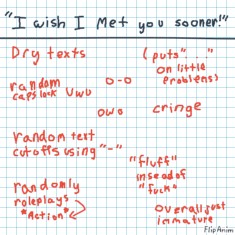 "I wish I met you sooner!"
Dry texts
(puts "     "
on little
problems)
random
caps lock UwU
0-0
owo
cringe
random text
cutoffs using "-"
"fluff"
insead of
"fuck"
randomly
roleplays
*Action*
overall just
immature
FlipAnim